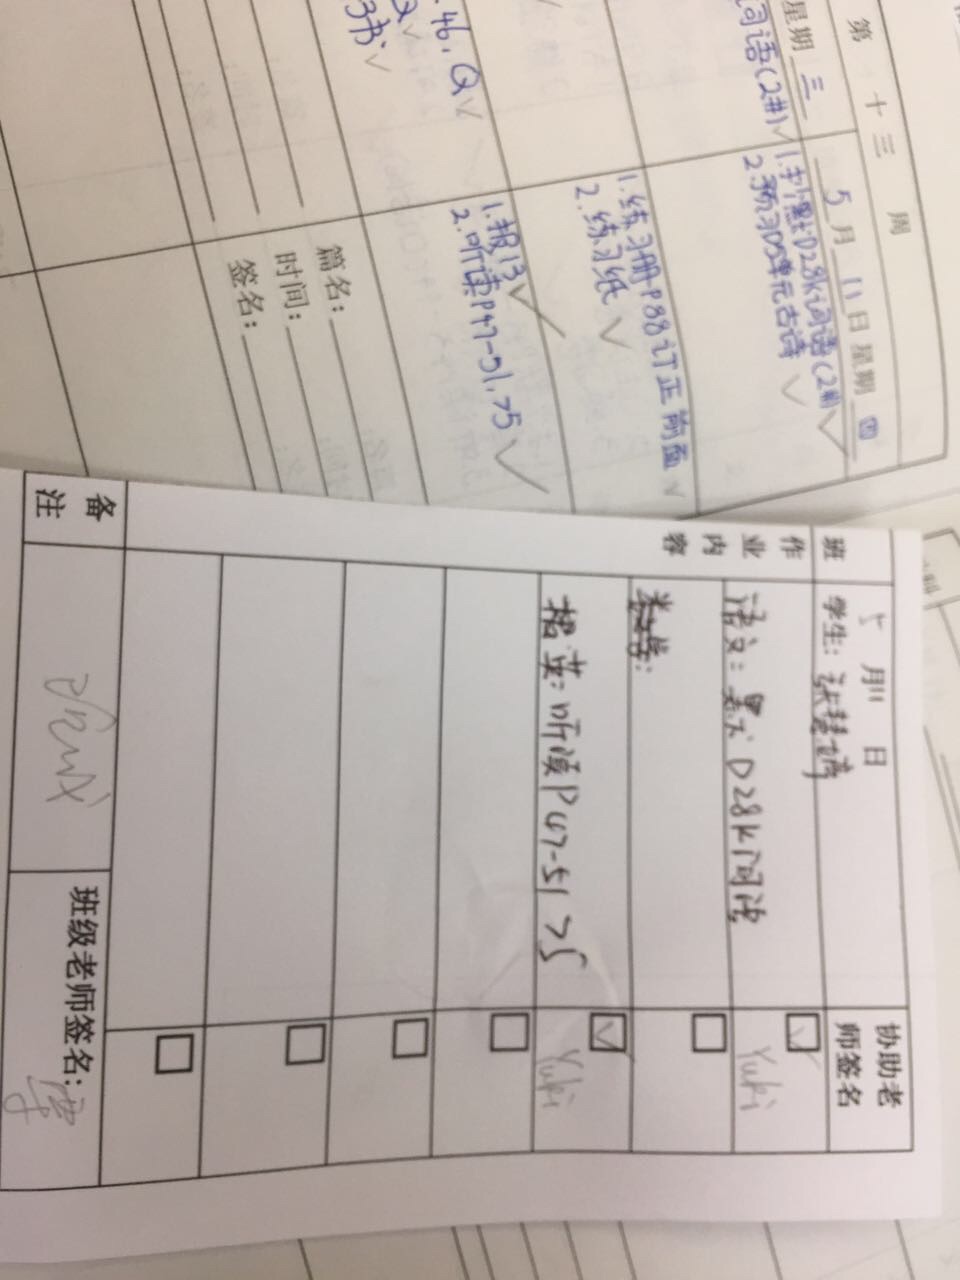 第十三周
星期三
词语(2#)
46, Q
3书
5月11日 星期四
1.抄黑D28k词语(2#)
2.预习D8单元古诗
1.练习册P88订正前面
2.练习纸
1.报13
2.听读P47-51,>5
篇名:
时间:
签名:
班
5月11日
学生:
协助老师签名
作业内容
语文: 墨 D28k词语
Yuki
英: 听读P47-51 >5
Yuki
备注
班级老师签名: